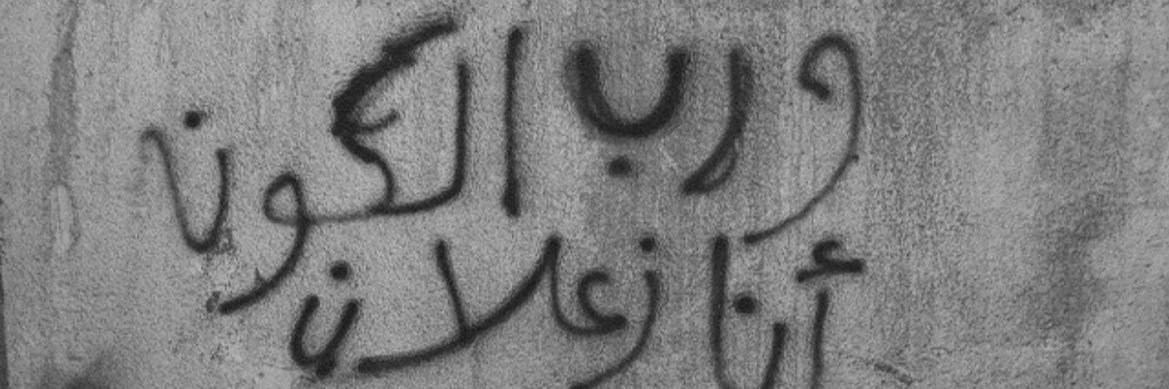 ورب الكون
أنا زعلان